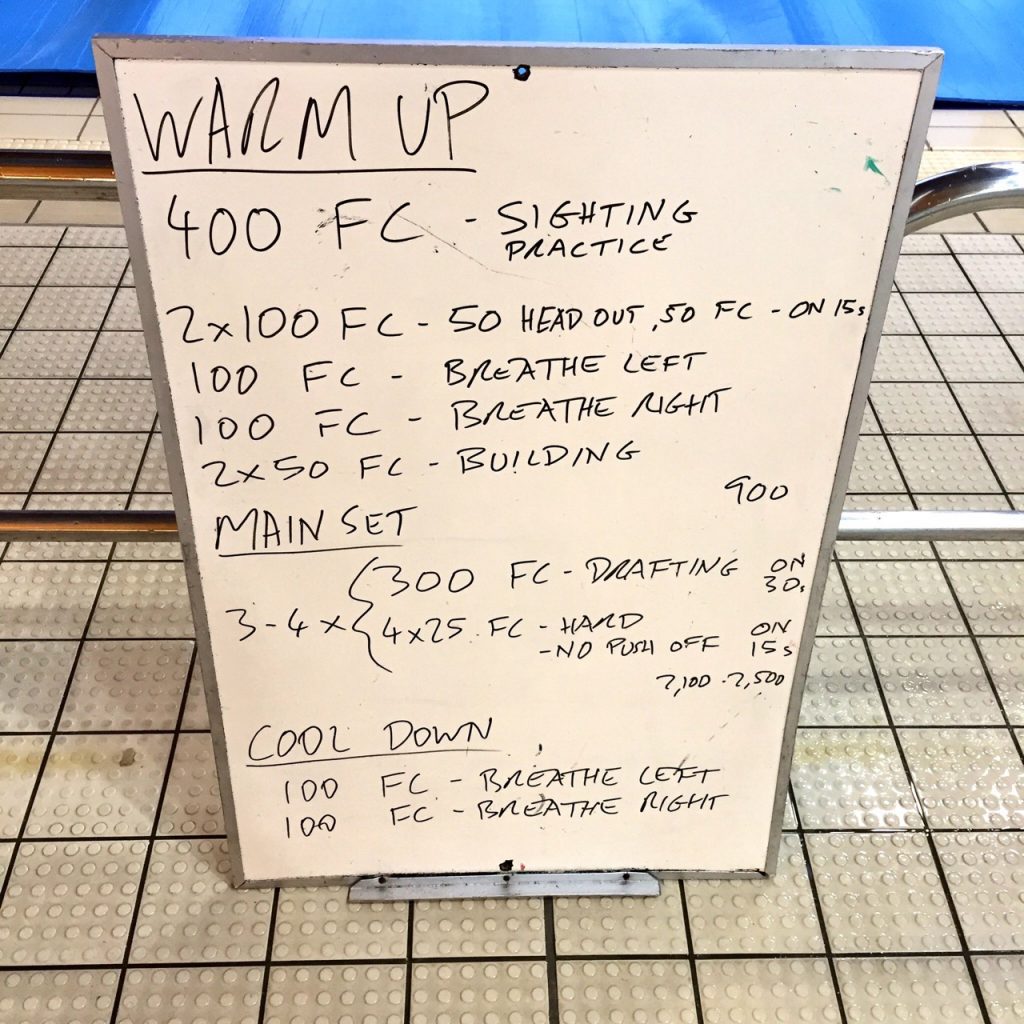 WARM UP
400 FC - SIGHTING
PRACTICE
2x100 FC - 50 HEAD OUT, 50 FC - ON 15s
100 FC - BREATHE LEFT
100 FC - BREATHE RIGHT
2x50 FC - BUILDING
900
MAIN SET
3-4 x { 300 FC - DRAFTING ON 30s
4x25 FC - HARD
- NO PUSH OFF ON 15s
2,100 - 2,500
COOL DOWN
100 FC - BREATHE LEFT
100 FC - BREATHE RIGHT